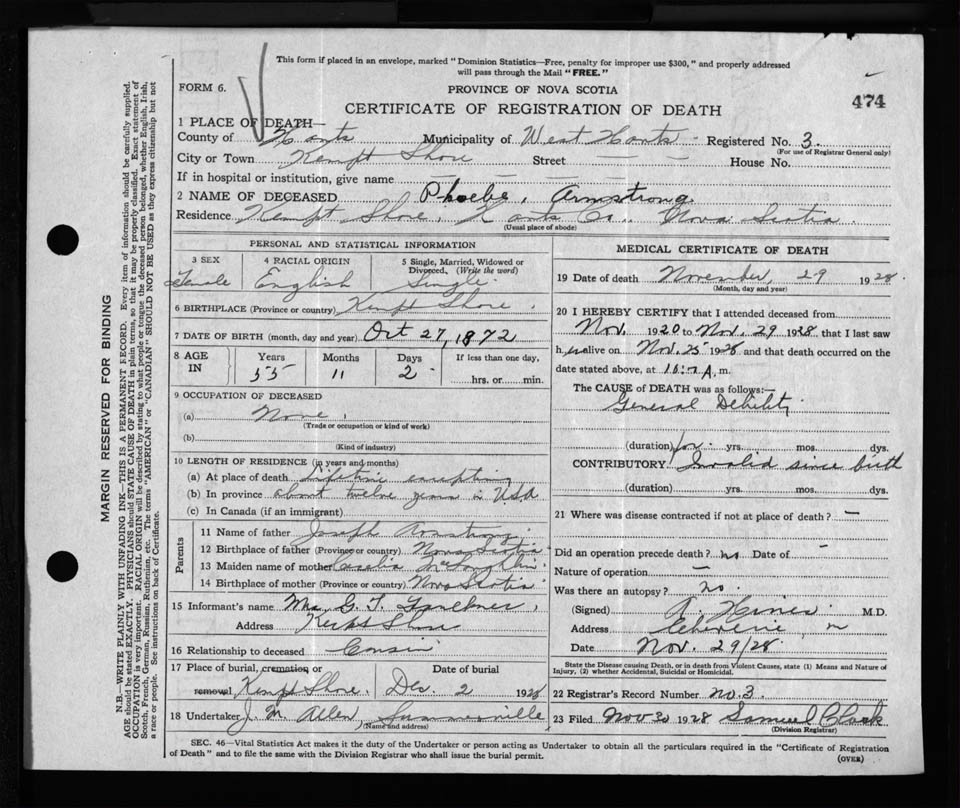 This form if placed in an envelope, marked "Dominion Statistics—Free, penalty for improper use $300," and properly addressed
will pass through the Mail "FREE."
FORM 6.
PROVINCE OF NOVA SCOTIA
474
CERTIFICATE OF REGISTRATION OF DEATH
1 PLACE OF DEATH—
County of Hants Municipality of West Hants Registered No. 3.
(For use of Registrar General only)
City or Town Kempt Shore Street — — House No.
If in hospital or institution, give name — — — —
2 NAME OF DECEASED Phoebe, Armstrong
Residence Kempt Shore, Hants Co., Nova Scotia
(Usual place of abode)
PERSONAL AND STATISTICAL INFORMATION
3 SEX 4 RACIAL ORIGIN 5 Single, Married, Widowed or
Divorced, (Write the word)
Female English Single
6 BIRTHPLACE (Province or country) Kempt Shore.
7 DATE OF BIRTH (month, day and year) Oct 27, 1872
8 AGE IN Years Months Days If less than one day,
55 11 2 hrs. or min.
9 OCCUPATION OF DECEASED
(a) None,
(Trade or occupation or kind of work)
(b)
(Kind of industry)
10 LENGTH OF RESIDENCE (in years and months)
(a) At place of death Lifetime excepting
(b) In province about twelve years in USA
(c) In Canada (if an immigrant)
Parents
11 Name of father Joseph Armstrong
12 Birthplace of father (Province or country) Nova Scotia
13 Maiden name of mother
14 Birthplace of mother (Province or country) Nova Scotia
15 Informant's name Mrs. G. T. Faulkner,
Address Shore
16 Relationship to deceased Cousin
17 Place of burial, cremation or Date of burial
removal Kempt Shore, Dec. 2 1928
18 Undertaker J. M. Allen, Summerville
(Name and address)
MEDICAL CERTIFICATE OF DEATH
19 Date of death November, 29 1928.
(Month, day and year)
20 I HEREBY CERTIFY that I attended deceased from
Nov. 1920 to Nov. 29 1928 that I last saw
h alive on Nov. 25 1928 and that death occurred on
date stated above, at A. m.
The CAUSE of DEATH was as follows:—
General Debility
(duration) yrs. mos. dys.
CONTRIBUTORY. Invalid since birth
(duration) yrs. mos. dys.
21 Where was disease contracted if not at place of death? —
Did an operation precede death? no Date of —
Nature of operation —
Was there an autopsy? no.
(Signed) A. Hines. M.D.
Address
Date Nov. 29/28
State the Disease causing Death, or in death from Violent Causes, state (1) Means and Nature of
Injury, (2) whether Accidental, Suicidal or Homicidal.
22 Registrar's Record Number no. 3.
23 Filed Nov 30 1928 Samuel Clark
(Division Registrar)
SEC. 46—Vital Statistics Act makes it the duty of the Undertaker or person acting as Undertaker to obtain all the particulars required in the "Certificate of Registration
of Death" and to file the same with the Division Registrar who shall issue the burial permit.
(OVER)
MARGIN RESERVED FOR BINDING
N.B.—WRITE PLAINLY WITH UNFADING INK—THIS IS A PERMANENT RECORD. Every item of information should be carefully supplied.
AGE should be stated EXACTLY. PHYSICIANS should STATE CAUSE OF DEATH in plain terms, so that it may be properly classified. Exact statement of
OCCUPATION is very important. RACIAL ORIGIN will be described by stating to what people or tongue the deceased person belonged, whether English, Irish,
Scotch, French, German, Russian, Ruthenian, etc. The terms "AMERICAN" or "CANADIAN" SHOULD NOT BE USED as they express citizenship but not
a race or people. See instructions on back of Certificate.